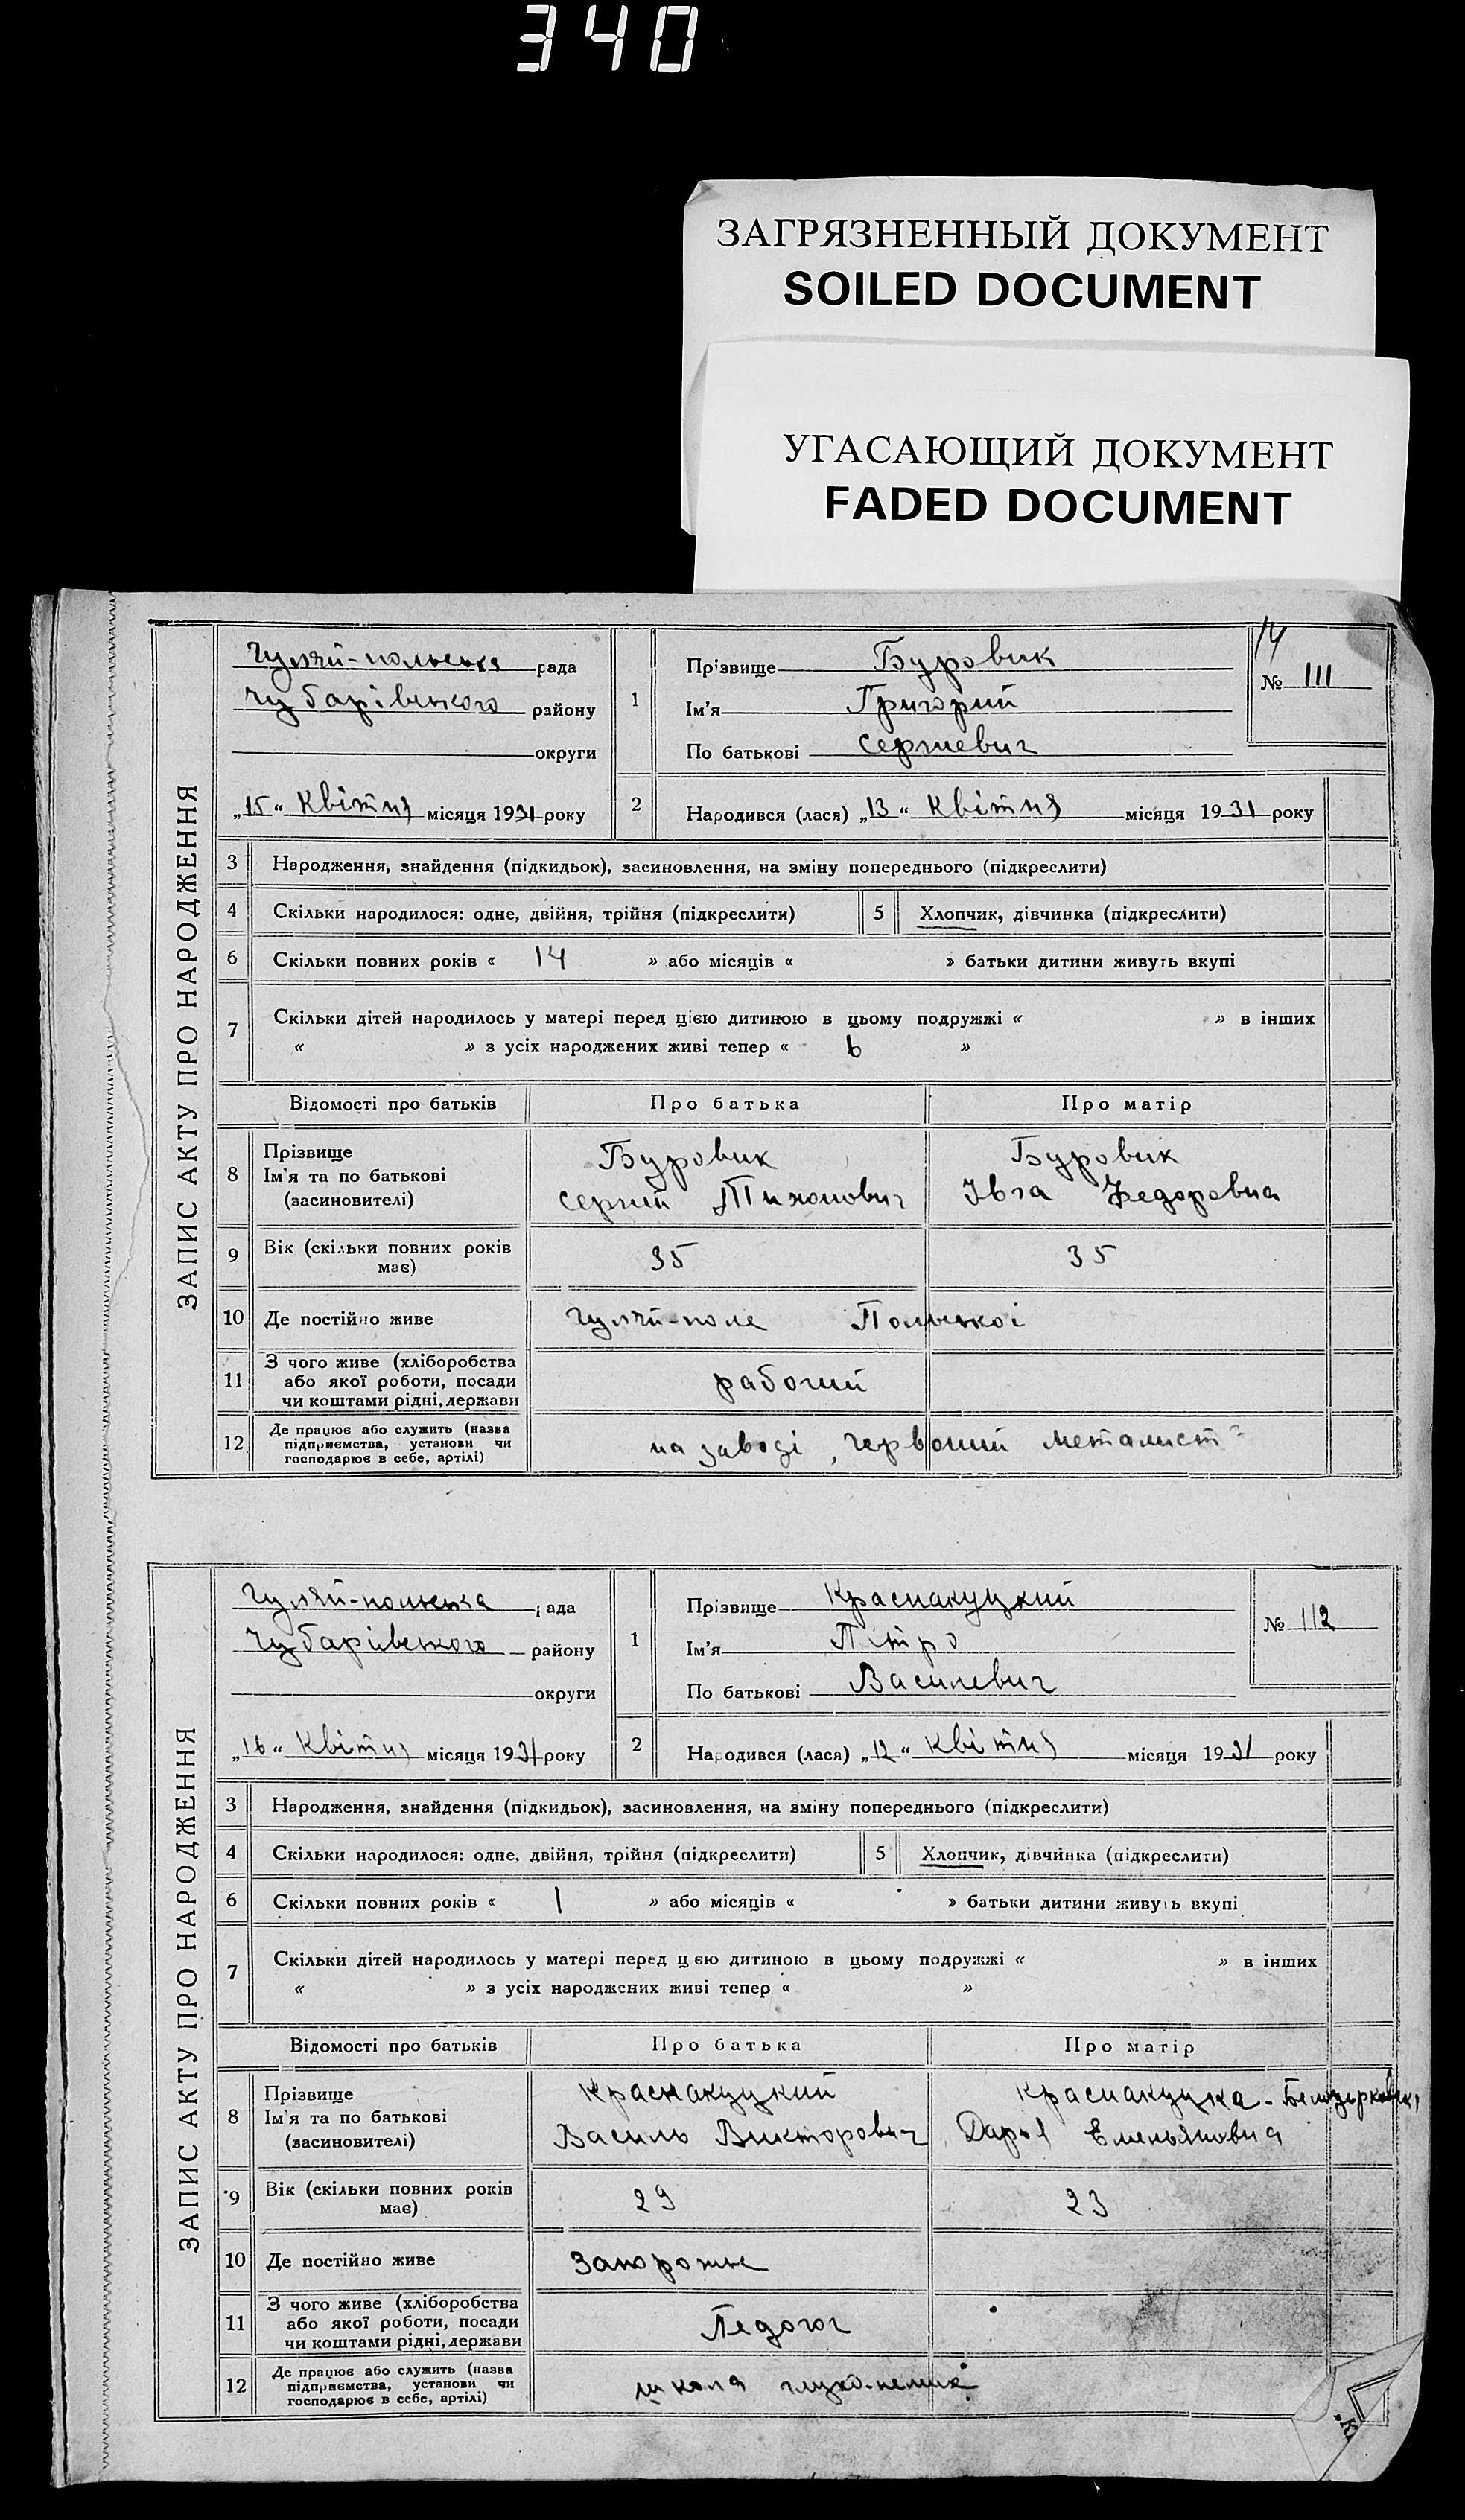 340
ЗАГРЯЗНЕННЫЙ ДОКУМЕНТ
SOILED DOCUMENT
УГАСАЮЩИЙ ДОКУМЕНТ
FADED DOCUMENT
ЗАПИС АКТУ ПРО НАРОДЖЕННЯ
Гуляй-польська рада
Чубарівського району
округи
„15“ Квітня місяця 1931 року
1
Прізвище Буровик
Ім'я Григорий
По батькові Сергиевич
14
№ 111
2 Народився (лася) „13“ Квітня місяця 1931 року
3 Народження, знайдення (підкидьок), засиновлення, на зміну попереднього (підкреслити)
4 Скільки народилося: одне, двійня, трійня (підкреслити) 5 Хлопчик, дівчинка (підкреслити)
6 Скільки повних років « 14 » або місяців « » батьки дитини живуть вкупі
7 Скільки дітей народилось у матері перед цією дитиною в цьому подружжі « » в інших
« » з усіх народжених живі тепер « 6 »
Відомості про батьків Про батька Про матір
8 Прізвище Буровик Буровик
Ім'я та по батькові Сергий Тихонович Івга Федоровна
(засиновителі)
9 Вік (скільки повних років має) 35 35
10 Де постійно живе Гуляй-поле Польської
11 З чого живе (хліборобства або якої роботи, посади чи коштами рідні, держави рабочий
12 Де працює або служить (назва підприємства, установи чи господарює в себе, артілі) на заводі „Червоний металист“
ЗАПИС АКТУ ПРО НАРОДЖЕННЯ
Гуляй-польська рада
Чубарівського району
округи
„16“ Квітня місяця 1931 року
1
Прізвище Краснакуцкий
Ім'я Пётро
По батькові Василевич
№ 112
2 Народився (лася) „12“ Квітня місяця 1931 року
3 Народження, знайдення (підкидьок), засиновлення, на зміну попереднього (підкреслити)
4 Скільки народилося: одне, двійня, трійня (підкреслити) 5 Хлопчик, дівчинка (підкреслити)
6 Скільки повних років « 1 » або місяців « » батьки дитини живуть вкупі
7 Скільки дітей народилось у матері перед цією дитиною в цьому подружжі « » в інших
« » з усіх народжених живі тепер « »
Відомості про батьків Про батька Про матір
8 Прізвище Краснакуцкий Краснакуцка -
Ім'я та по батькові Василь Викторович Дарья Емельяновна
(засиновителі)
9 Вік (скільки повних років має) 29 23
10 Де постійно живе Запорожье
11 З чого живе (хліборобства або якої роботи, посади чи коштами рідні, держави Педогог
12 Де працює або служить (назва підприємства, установи чи господарює в себе, артілі) школа глухо-немих